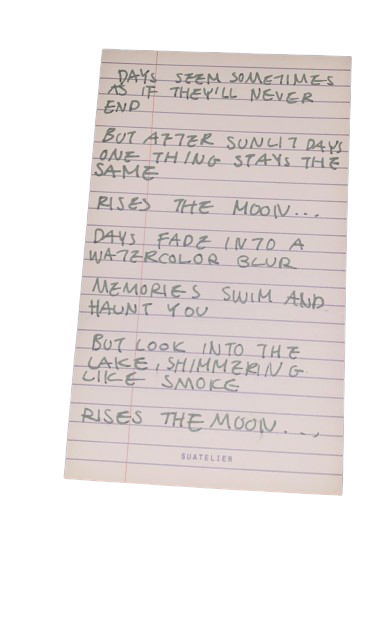 DAYS SEEM SOMETIMES
AS IF THEY'LL NEVER
END
BUT AFTER SUNLIT DAYS
ONE THING STAYS THE
SAME
RISES THE MOON...
DAYS FADE INTO A
WATERCOLOR BLUR
MEMORIES SWIM AND
HAUNT YOU
BUT LOOK INTO THE
LAKE, SHIMMERING
LIKE SMOKE
RISES THE MOON...
SUATELIER